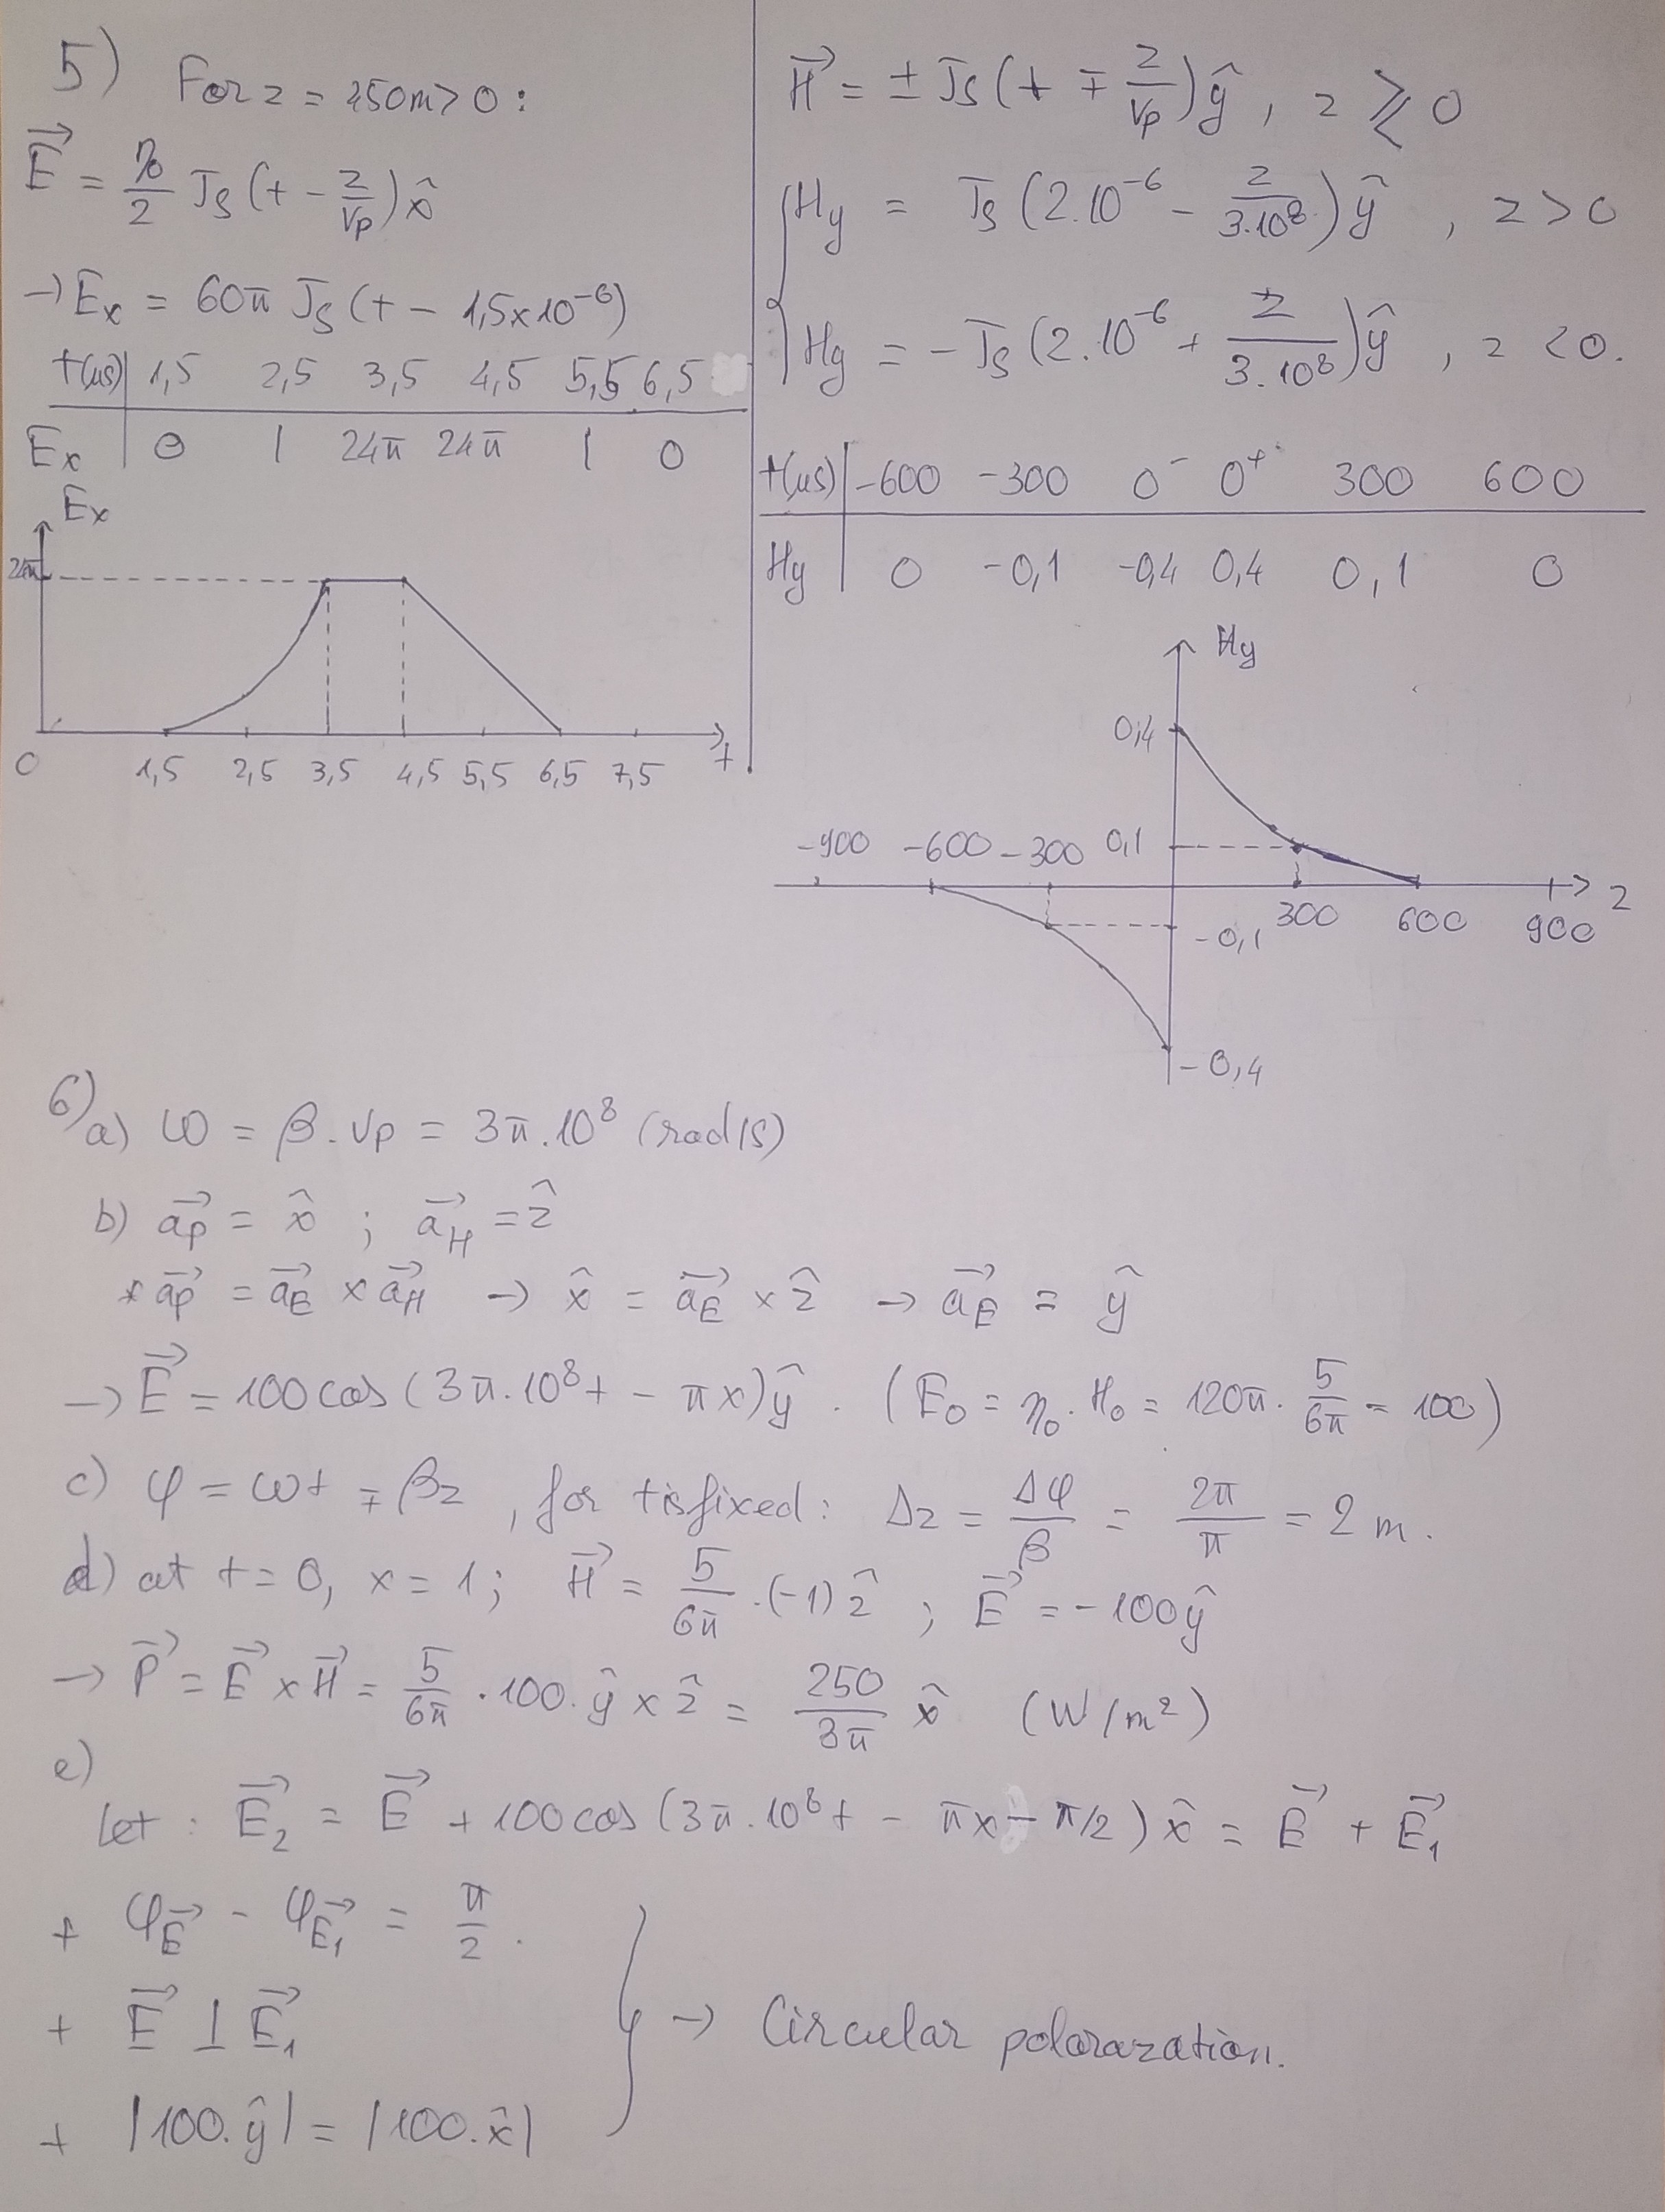 5) For z = 450m > 0 :
E⃗ = η₀/2 Js (t - z/vp) x̂
→ Ex = 60π Js (t - 1,5x10⁻⁶)
t(us) | 1,5 2,5 3,5 4,5 5,5 6,5
Ex | 0 1 24π 24π 1 0
Ex
24π
0 1,5 2,5 3,5 4,5 5,5 6,5 7,5 t
H⃗ = ± Js (t ∓ z/vp) ŷ , z ≷ 0
Hy = Js (2.10⁻⁶ - z/3.10⁸) ŷ , z > 0
Hy = - Js (2.10⁻⁶ + z/3.10⁸) ŷ , z < 0.
t(us) | -600 -300 0⁻ 0⁺ 300 600
Hy | 0 -0,1 -0,4 0,4 0,1 0
Hy
0,4
-900 -600 -300 0,1
300 600 900 z
-0,1
-0,4
6)
a) ω = β.vp = 3π.10⁸ (rad/s)
b) a⃗p = x̂ ; a⃗H = ẑ
* a⃗p = a⃗E x a⃗H → x̂ = a⃗E x ẑ → a⃗E = ŷ
→ E⃗ = 100cos(3π.10⁸t - πx)ŷ . (E₀ = η₀.H₀ = 120π. 5/6π = 100)
c) φ = ωt ∓ βz , for t is fixed: Δz = Δφ/β = 2π/π = 2 m.
d) at t = 0, x = 1; H⃗ = 5/6π .(-1) ẑ ; E⃗ = -100ŷ
→ P⃗ = E⃗ x H⃗ = 5/6π .100. ŷ x ẑ = 250/3π x̂ (W/m²)
e)
Let : E⃗₂ = E⃗ + 100cos(3π.10⁸t - πx - π/2) x̂ = E⃗ + E⃗₁
+ φE⃗ - φE⃗₁ = π/2 .
+ E⃗ ⊥ E⃗₁
→ Circular polarazation.
+ |100.ŷ| = |100.x̂|